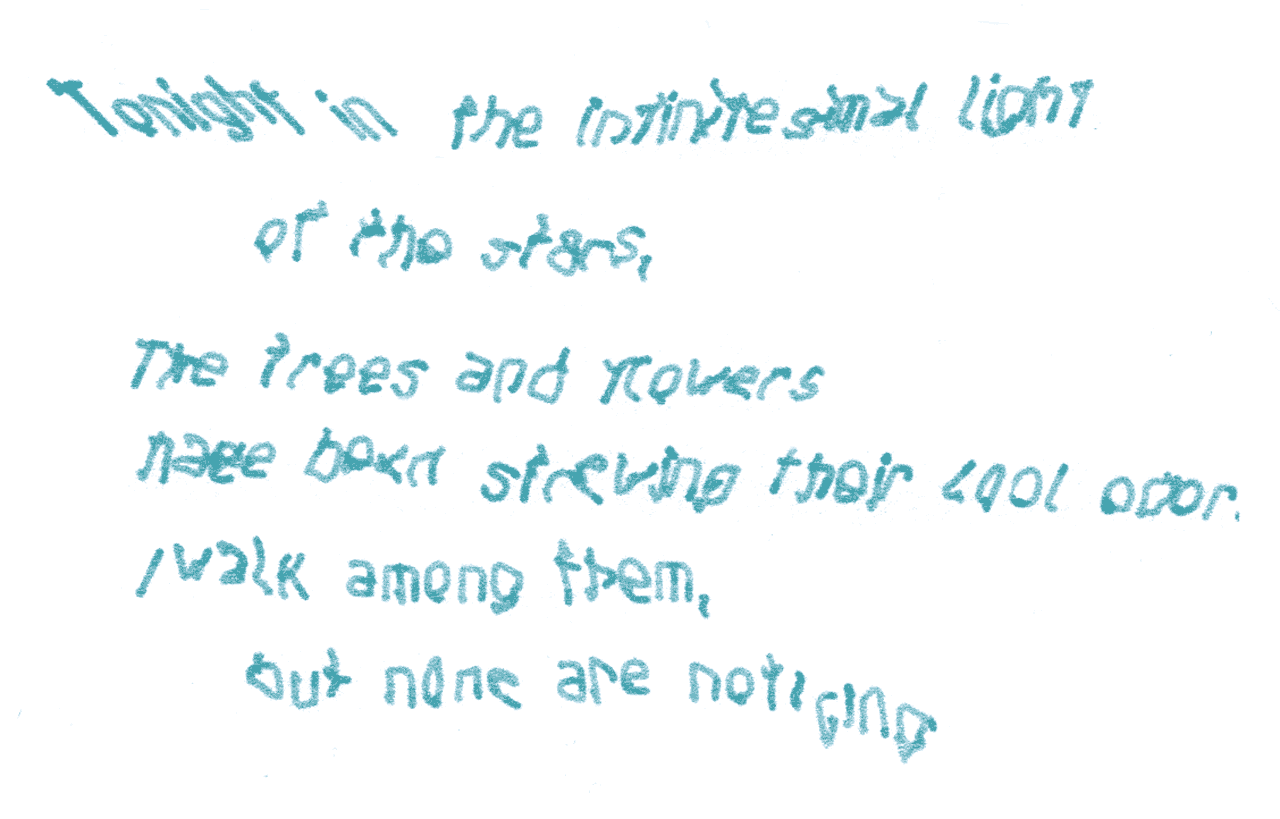 Tonight in the infinitesimal light
of the stars,
The trees and flowers
have been strewing their cool odor.
I walk among them,
but none are noticing